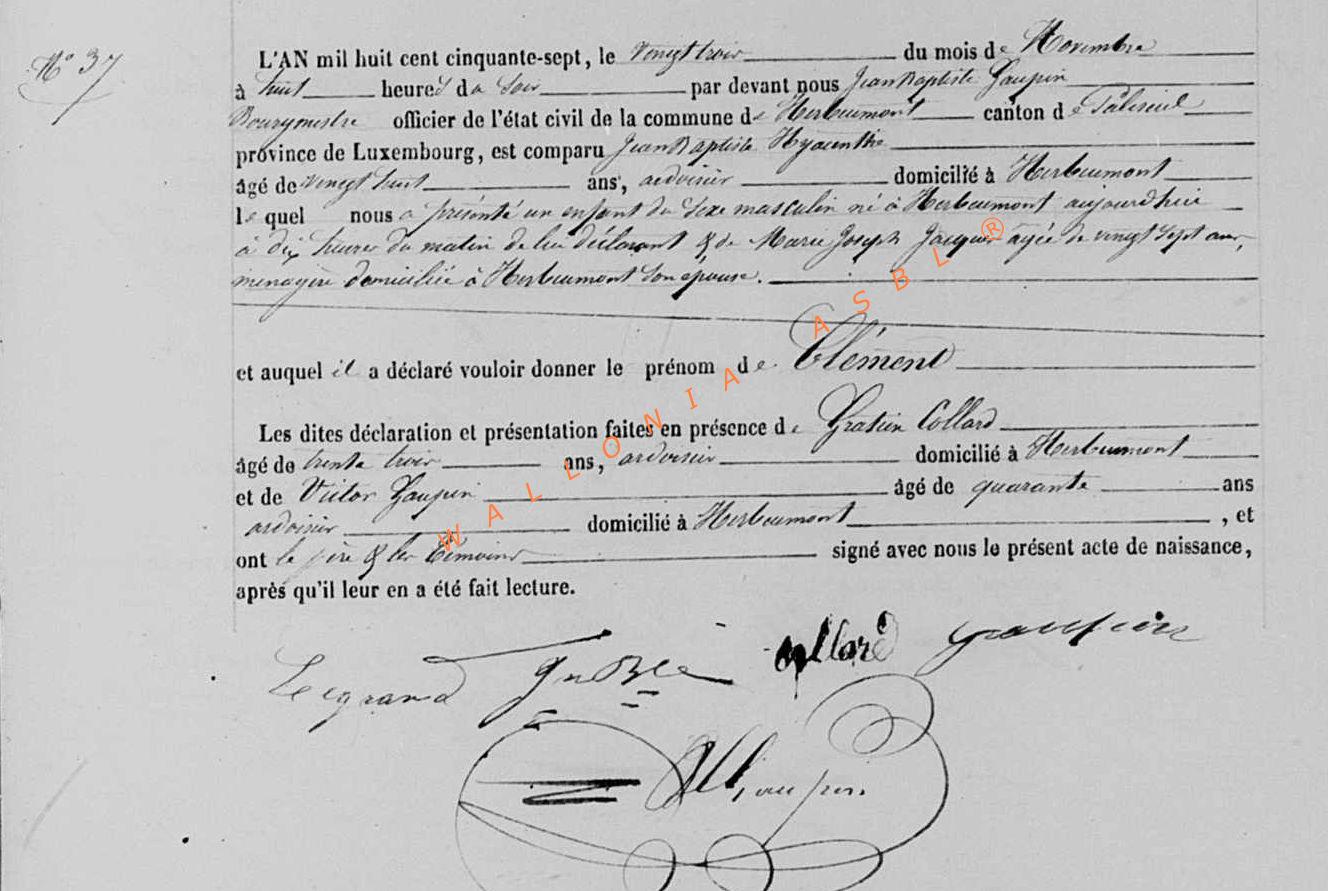 N° 37
L'AN mil huit cent cinquante-sept, le vingt trois du mois de Novembre
à huit heures du soir par devant nous Jean Baptiste Gaupin
Bourgmestre officier de l'état civil de la commune de Herbeumont canton de Paliseul
province de Luxembourg, est comparu Jean Baptiste Hyacinthe
âgé de vingt huit ans, ardoisier domicilié à Herbeumont
lequel nous a présenté un enfant du sexe masculin né à Herbeumont aujourd'hui
à dix heures du matin de lui déclarant & de Marie Joseph Jacques agée de vingt sept ans,
menagère domiciliée à Herbeumont son epouse.
et auquel il a déclaré vouloir donner le prénom de Clément
Les dites déclaration et présentation faites en présence de Gratien Collard
âgé de trente trois ans, ardoisier domicilié à Herbeumont
et de Victor Gaupin âgé de quarante ans
ardoisier domicilié à Herbeumont, et
ont le père & les témoins signé avec nous le présent acte de naissance,
après qu'il leur en a été fait lecture.
Legrand Jn Bte Collard Gaupin
Gaupin
WALLONIA ASBL ®